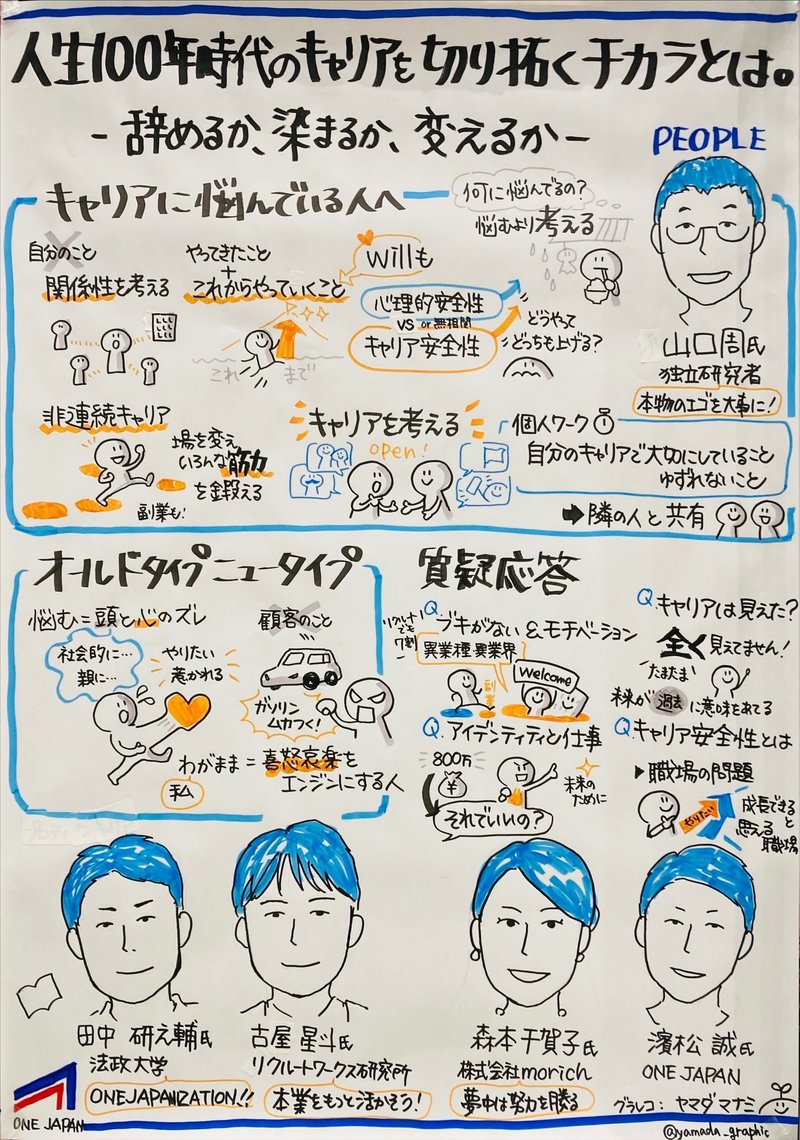 人生100年時代のキャリアを切り拓くチカラとは。
- 辞めるか、染まるか、変えるか -
PEOPLE
キャリアに悩んでいる人へ
何に悩んでるの？
悩むより考える
自分のこと
関係性を考える
やってきたこと
+
これからやっていくこと
willも
心理的安全性
VS or 無相関
キャリア安全性
どうやって
どっちも上げる？
これ まで
山口周氏
独立研究者
本物のエゴを大事に！
非連続キャリア
場を変え
いろんな筋力
を鍛える
副業も！
キャリアを考える
open!
個人ワーク
自分のキャリアで大切にしていること
ゆずれないこと
➡隣の人と共有
オールドタイプ ニュータイプ
悩む=頭と心のズレ
社会的に…
親に…
やりたい
惹かれる
顧客のこと
ガソリン
ムカつく！
わがまま=喜怒哀楽を
エンジンにする人
質疑応答
Q.ブキがない&モチベーション
リクルート
でも
7割
異業種・異業界
副業
Welcome
Q.アイデンティティと仕事
800万
¥
それでいいの？
未来の
ために
Q.キャリアは見えた？
全く見えてません！
たまたま
未来が過去に意味をあてる
Q.キャリア安全性とは
▶職場の問題
やりたい
成長できる
と
思える
職場
田中 研之輔氏
法政大学
ONEJAPANIZATION!!
古屋 星斗氏
リクルートワークス研究所
本業をもっと活かそう！
森本千賀子氏
株式会社morich
夢中は努力を勝る
濱松 誠氏
ONE JAPAN
グラレコ： ヤマダマナミ
@yamada_graphic
ONE JAPAN